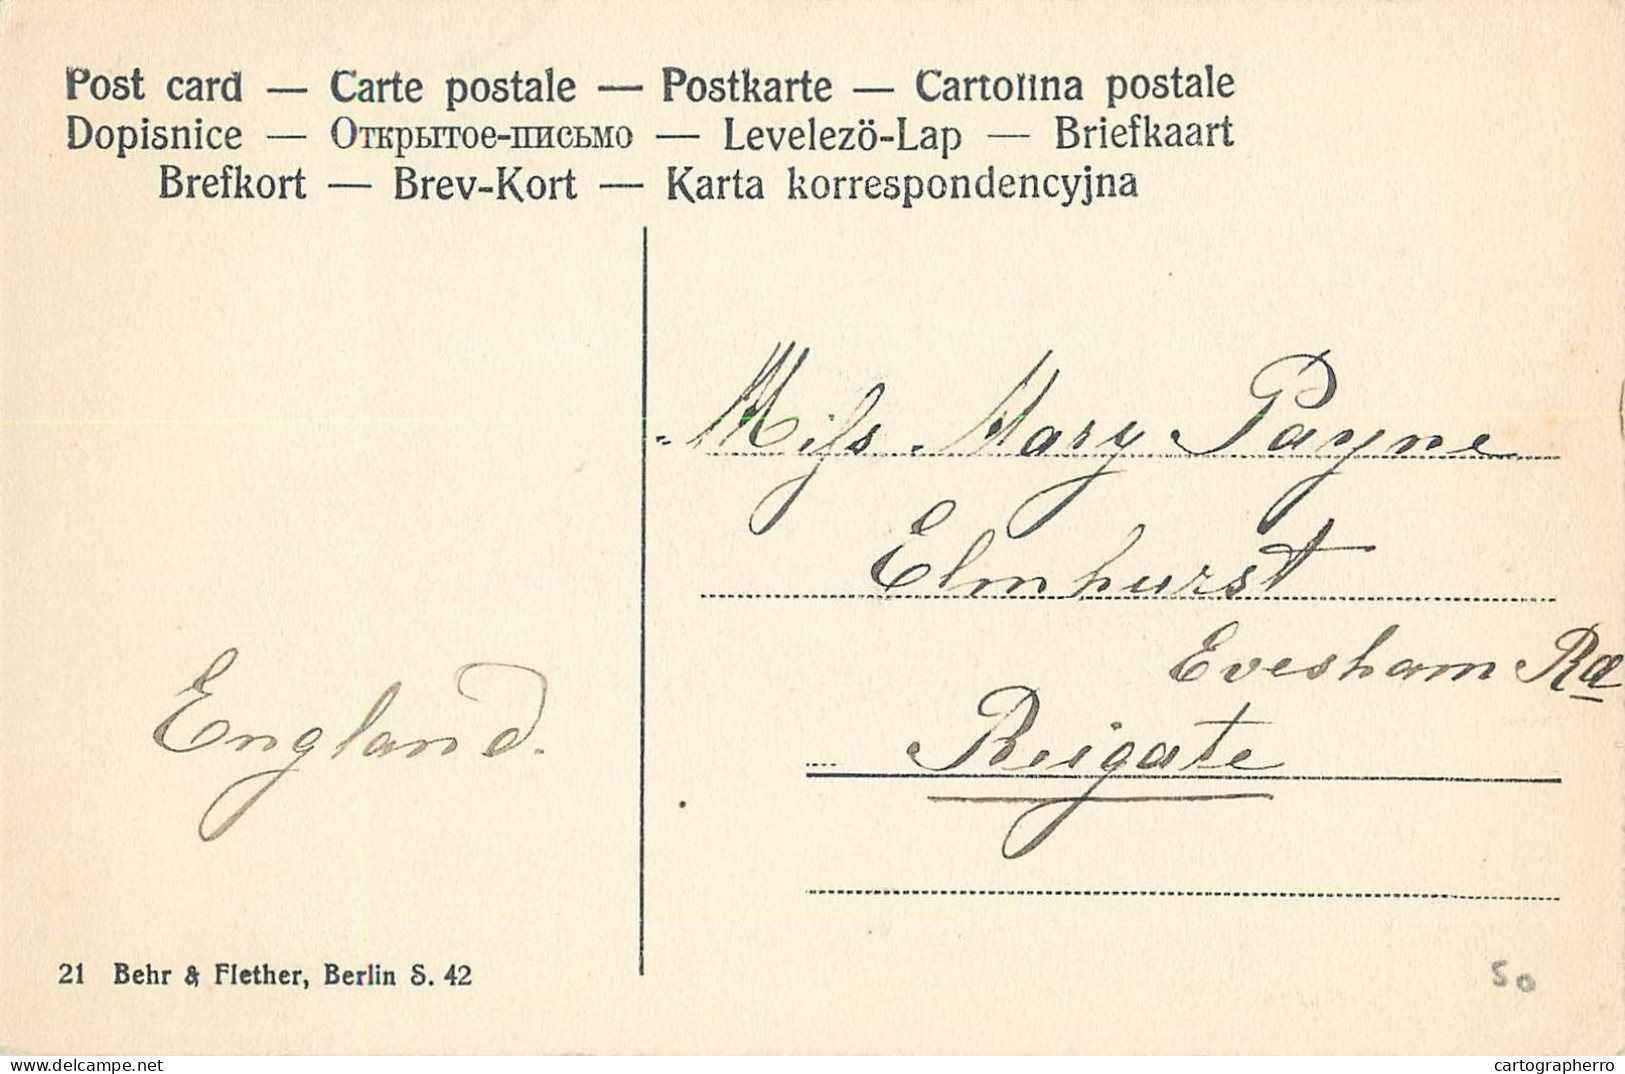 Post card — Carte postale — Postkarte — Cartolina postale
Dopisnice — Открытое-письмо — Levelezö-Lap — Briefkaart
Brefkort — Brev-Kort — Karta korrespondencyjna
Miss Mary Payne
Elmhurst
Evesham Rd
Reigate
England.
21 Behr & Flether, Berlin S. 42
50
delcampe.net
cartographerro